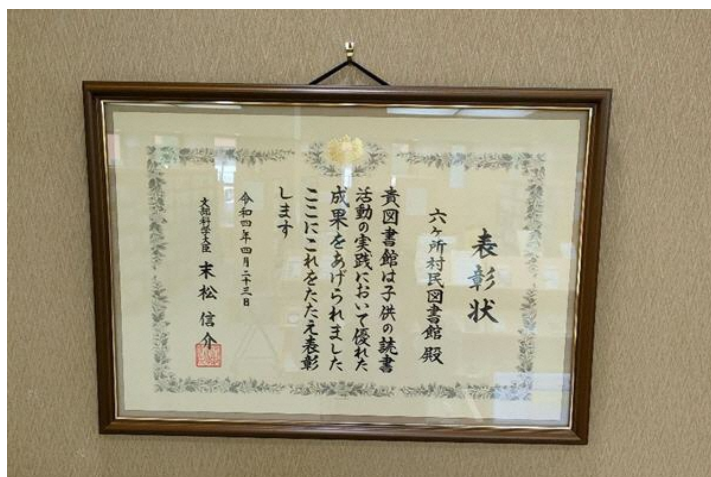 表彰状
六ヶ所村民図書館 殿
貴図書館は子供の読書
活動の実践において優れた
成果をあげられました
ここにこれをたたえ表彰
します
令和四年四月二十三日
文部科学大臣 末松信介